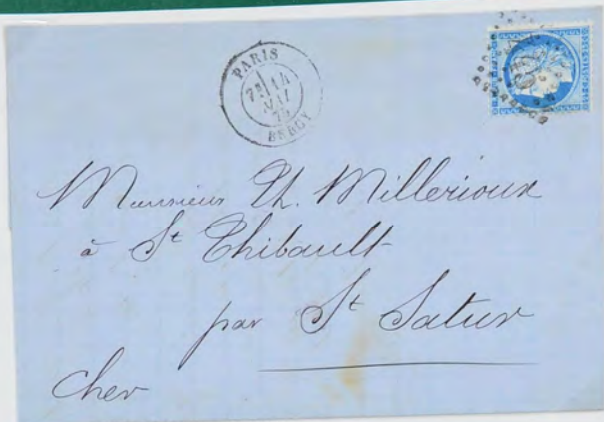 PARIS
14
MAI
75
BERCY
Monsieur Ch. Millerioux
à St Thibault
par St Satur
Cher